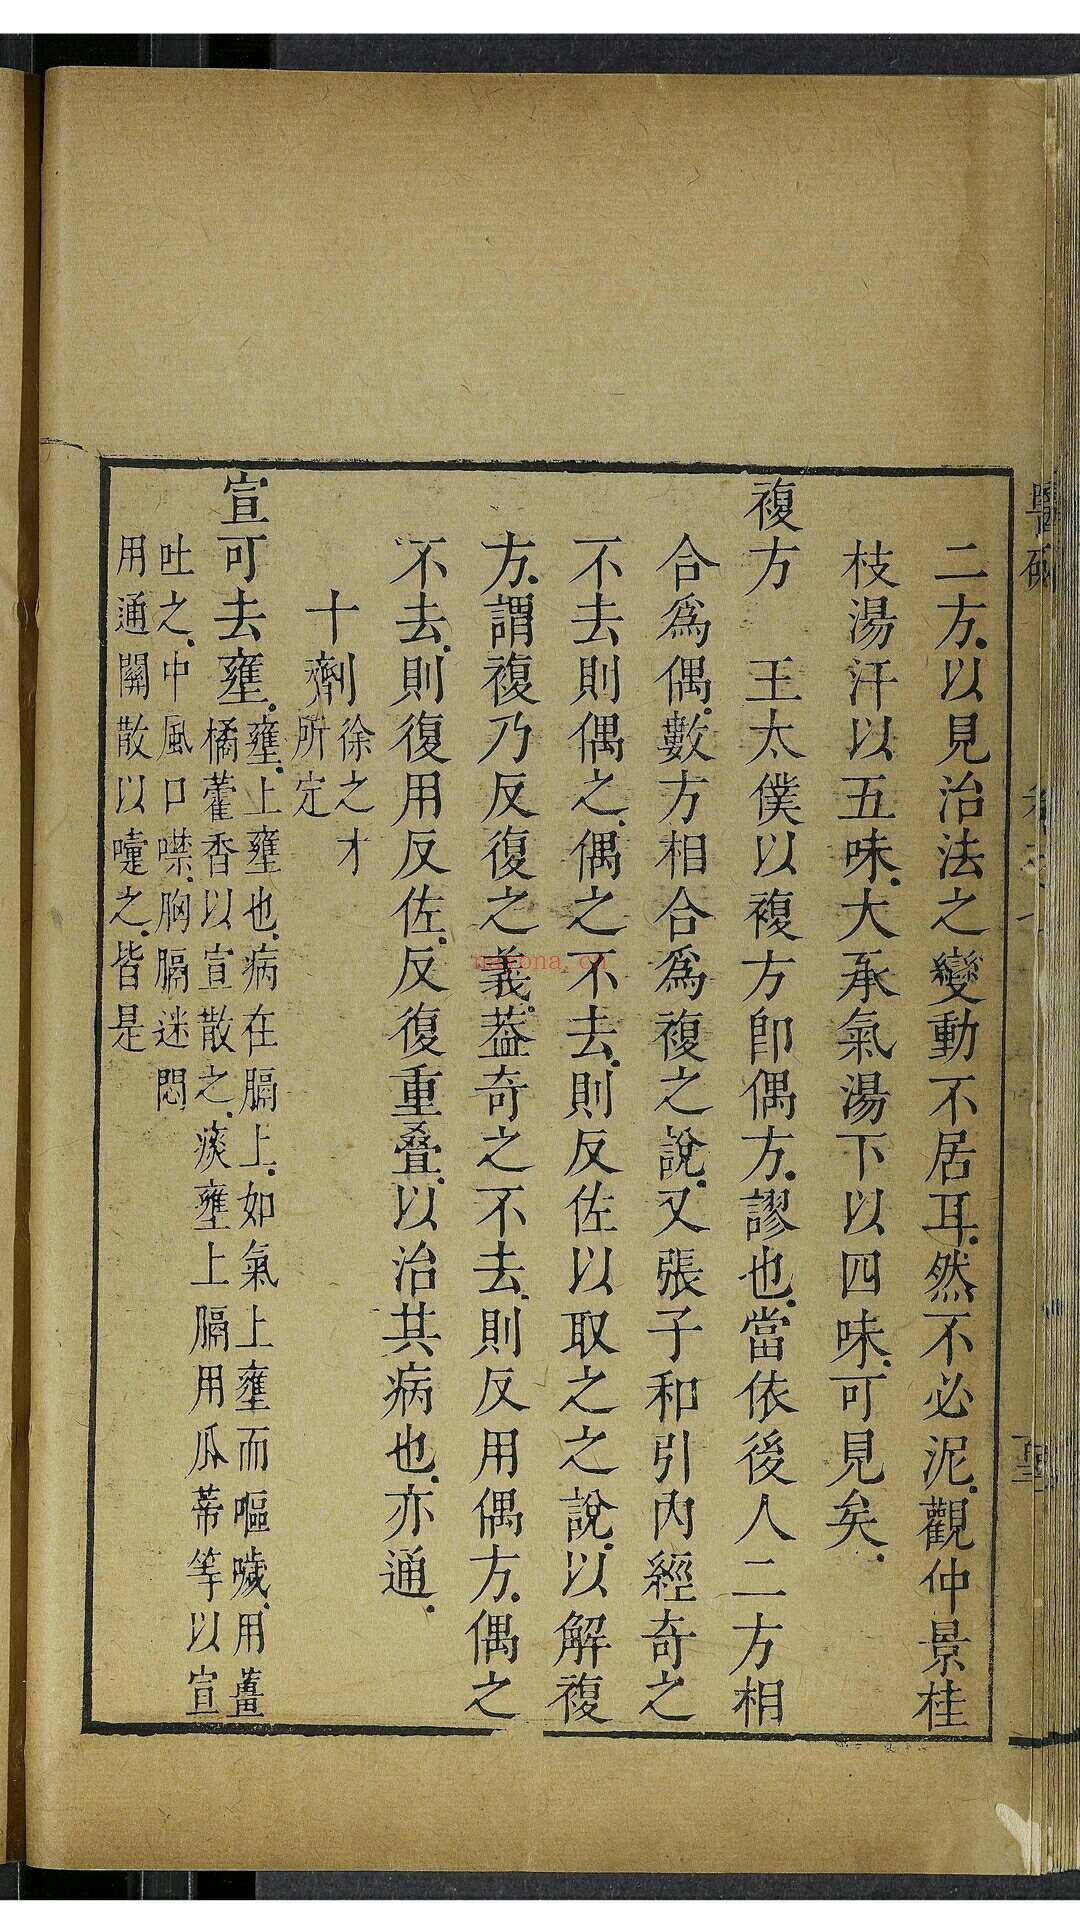 二方.以見治法之變動不居耳.然不必泥.觀仲景桂
枝湯汗以五味.大承氣湯下以四味.可見矣.
複方　王太僕以複方卽偶方.謬也.當依後人二方相
合爲偶.數方相合爲複之說.又張子和引內經奇之
不去則偶之.偶之不去.則反佐以取之之說.以解複
方.謂複乃反復之義.葢奇之不去.則反用偶方.偶之
不去.則復用反佐.反復重疊.以治其病也.亦通.
十劑徐之才
所定
宣可去壅.壅.上壅也.病在膈上.如氣上壅而嘔噦.用薑
橘藿香以宣散之.痰壅上膈用瓜蒂等以宣
吐之.中風口噤.胸膈迷悶
用通關散以嚏之.皆是
nayona.cn
醫砭